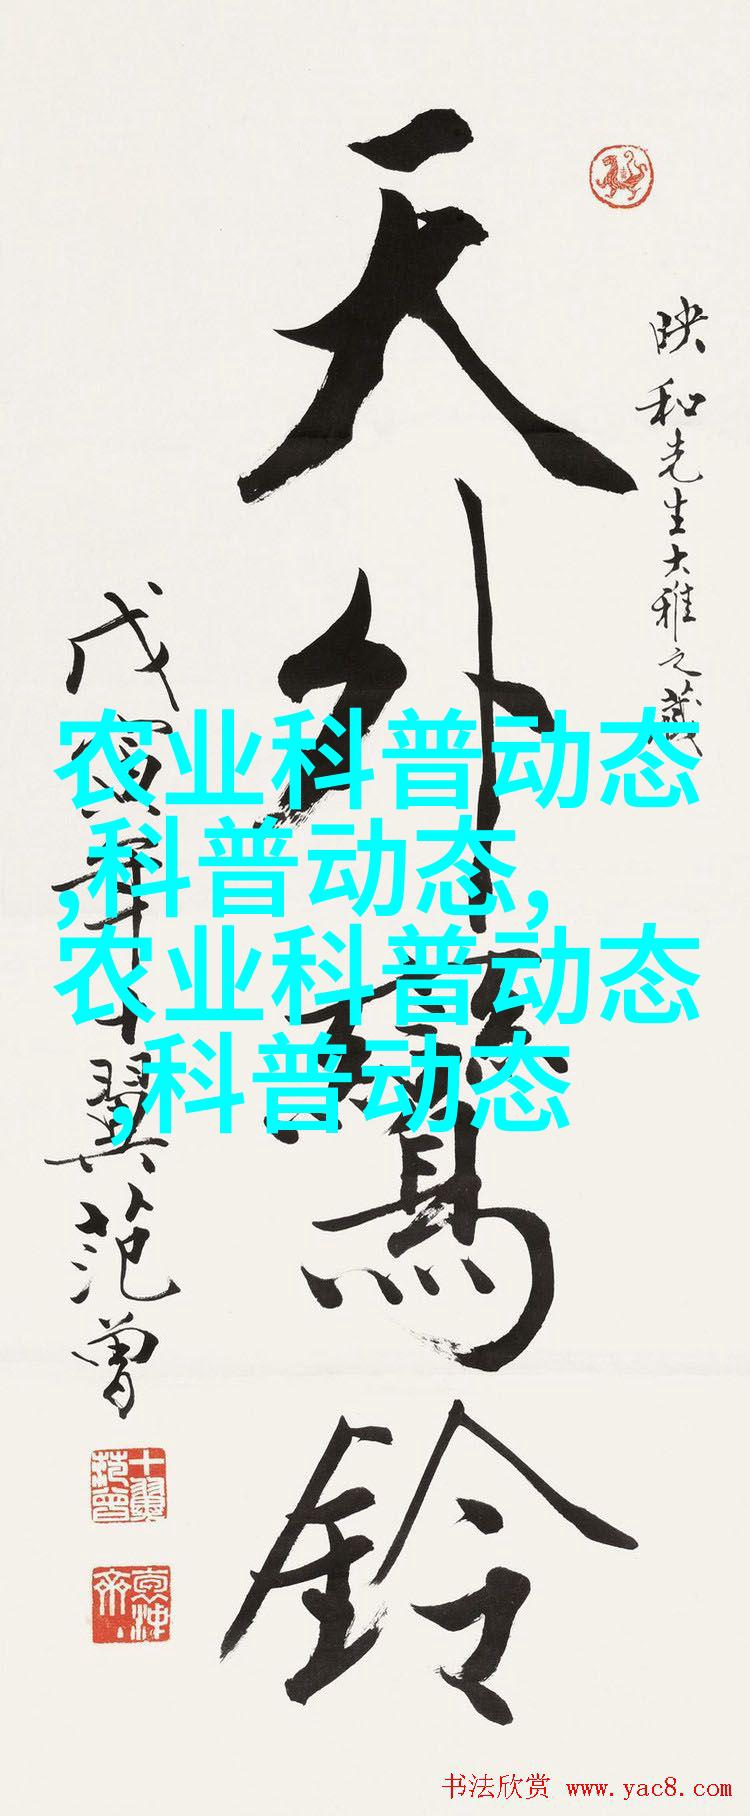 映和先生大雅之藏
天外鸞鈴
戊寅年十翼范曾
十翼
范曾
农业科普动态
,科普动态,
农业科普动态
,科普动态
书法欣赏 www.yac8.com